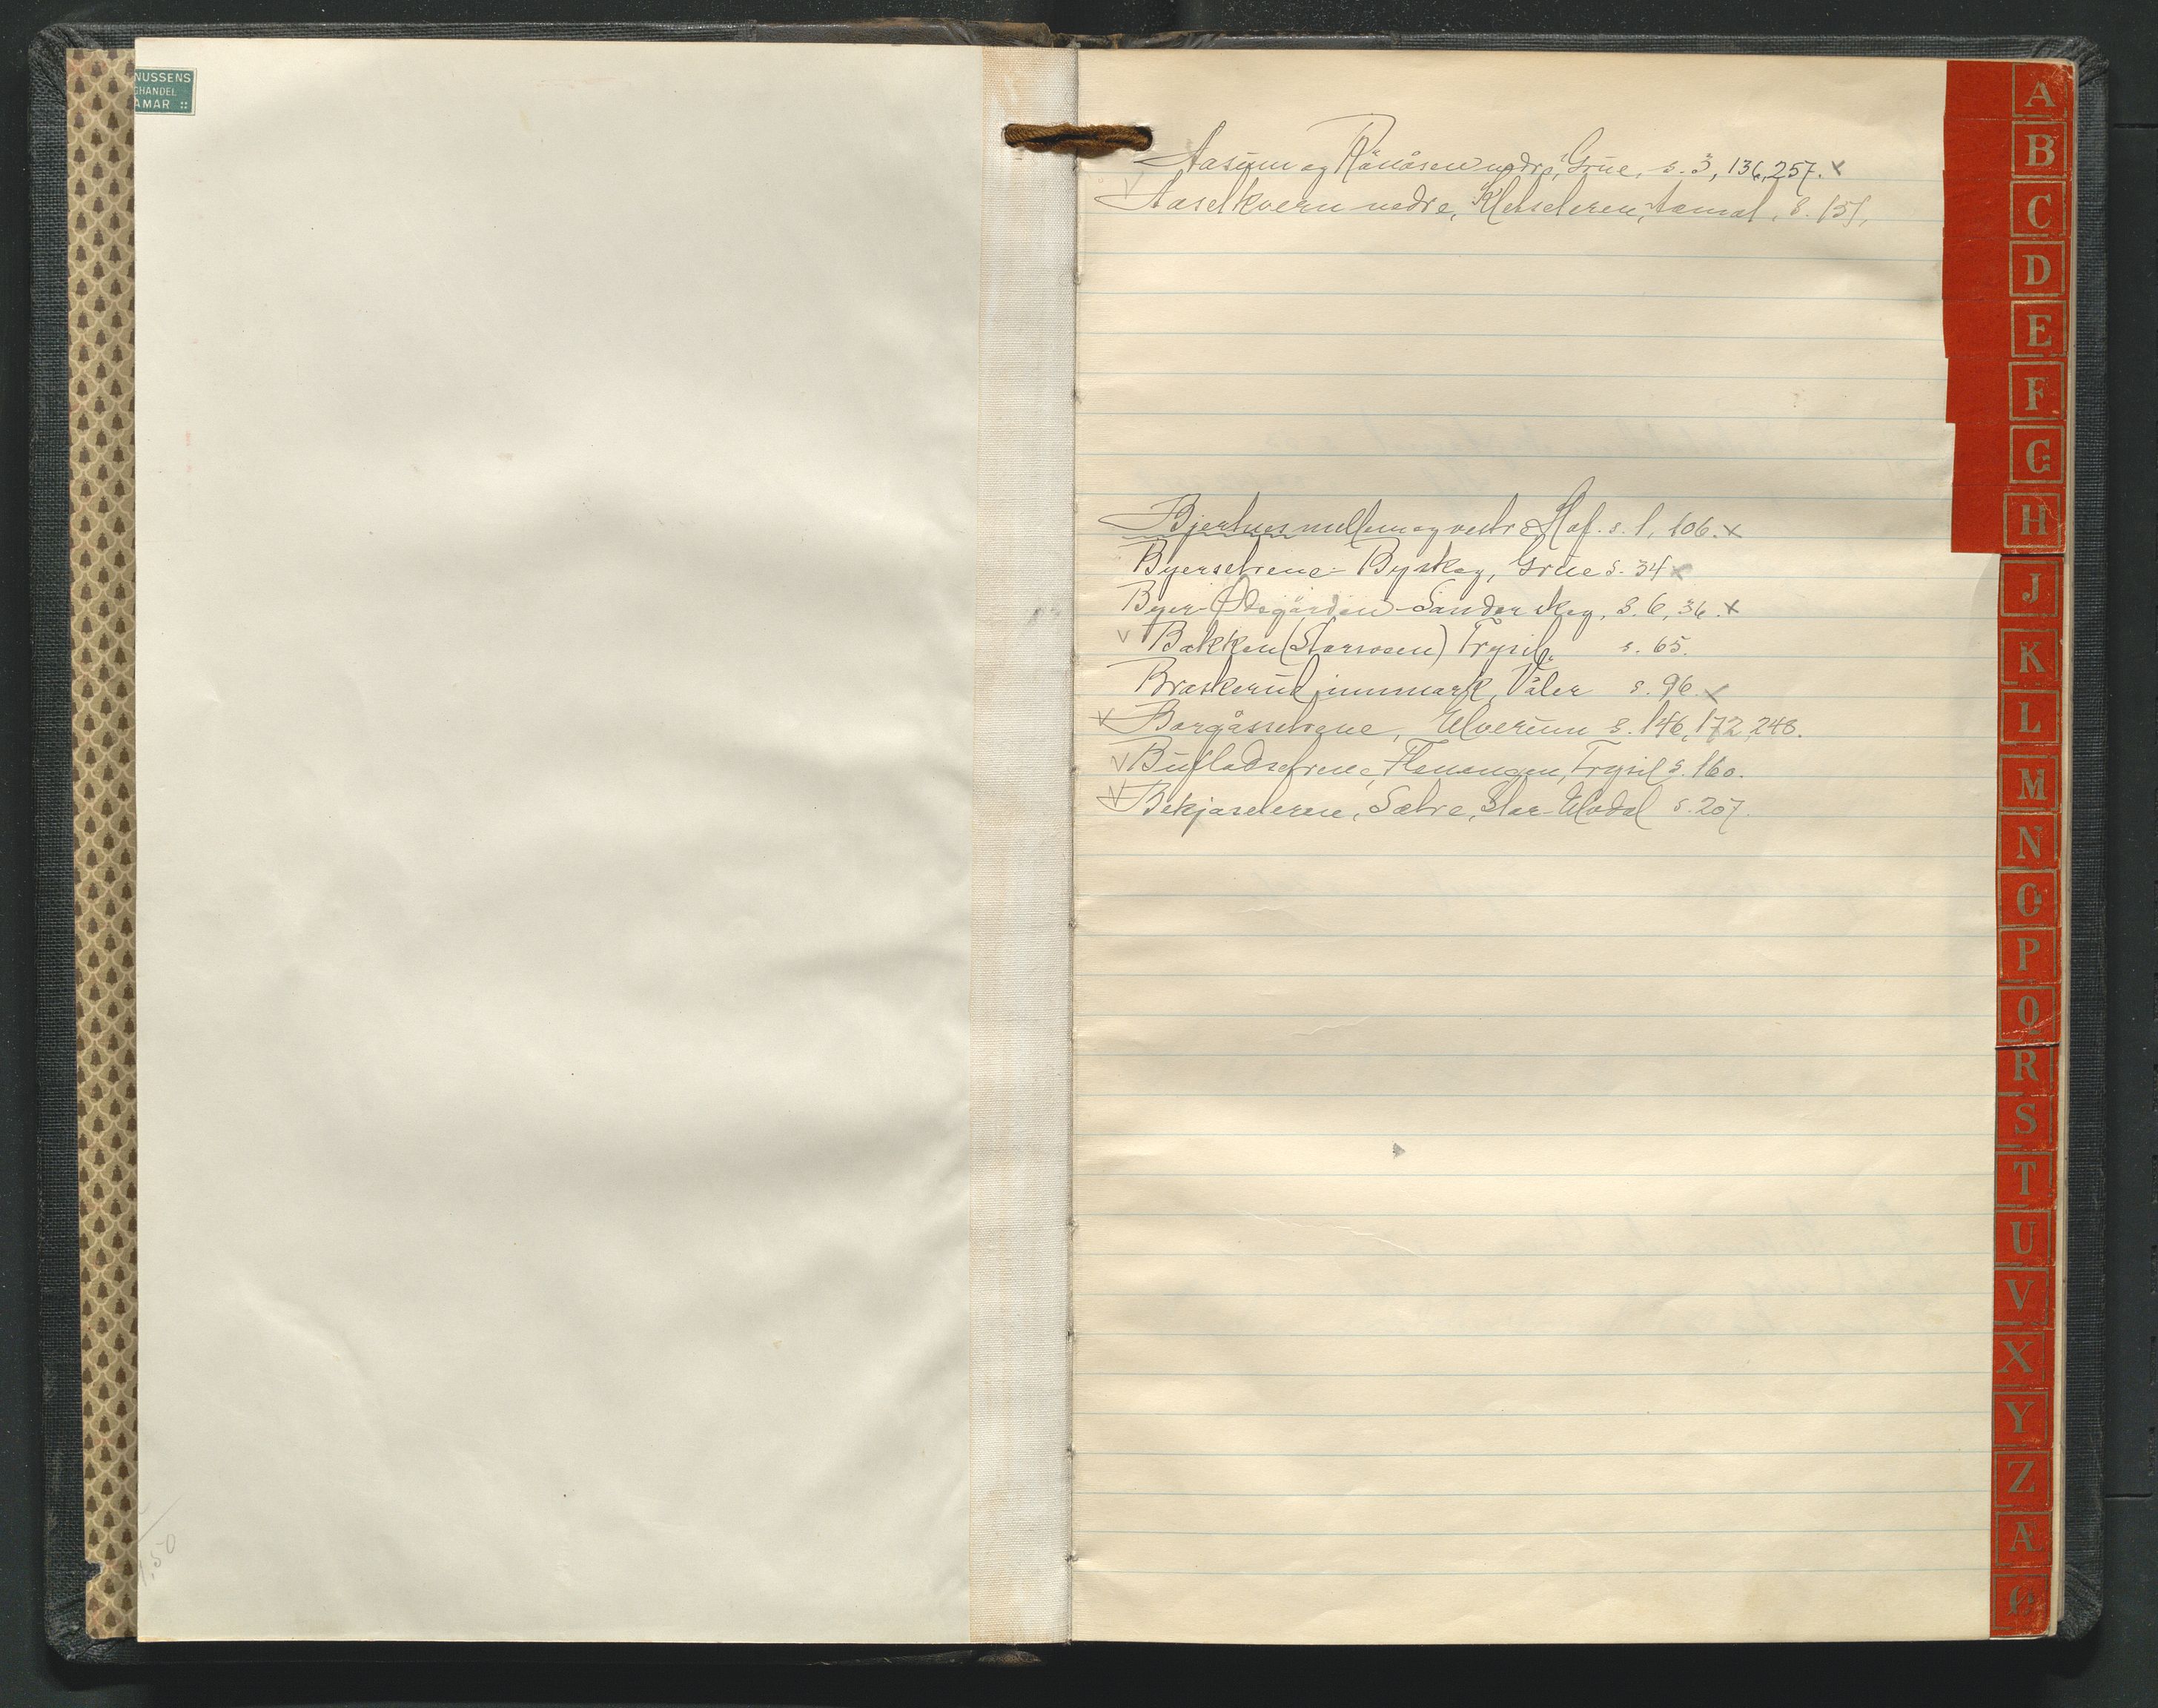 NUSSENS
GHANDEL
AMAR ::
1,50
Aasum og Rånåsen nedre, Grue, s. 3, 136, 257. x
V Aaselkvern nedre, Kletseteren, Aamot, s. 151.
Bjertnes mellem og vestre Hof. s. 1, 106. x
Byersetrene - Byskog, Grue s. 34 x
Byer-Ødegården - Sander skog, s. 6, 36. x
V Bakken (Storvoen) Trysil, s. 65.
Braskerud innmark, Våler s. 96. x
V Borgåssetrene, Elverum s. 146, 172, 248.
V Bufladsetrene, Flenangen, Trysil s. 160.
V Bekjaseterene, Sætre, Stor-Elvdal s. 207.
A
B
C
D
E
F
G
H
J
K
L
M
N
O
P
Q
R
S
T
U
V
X
Y
Z
Æ
Ø